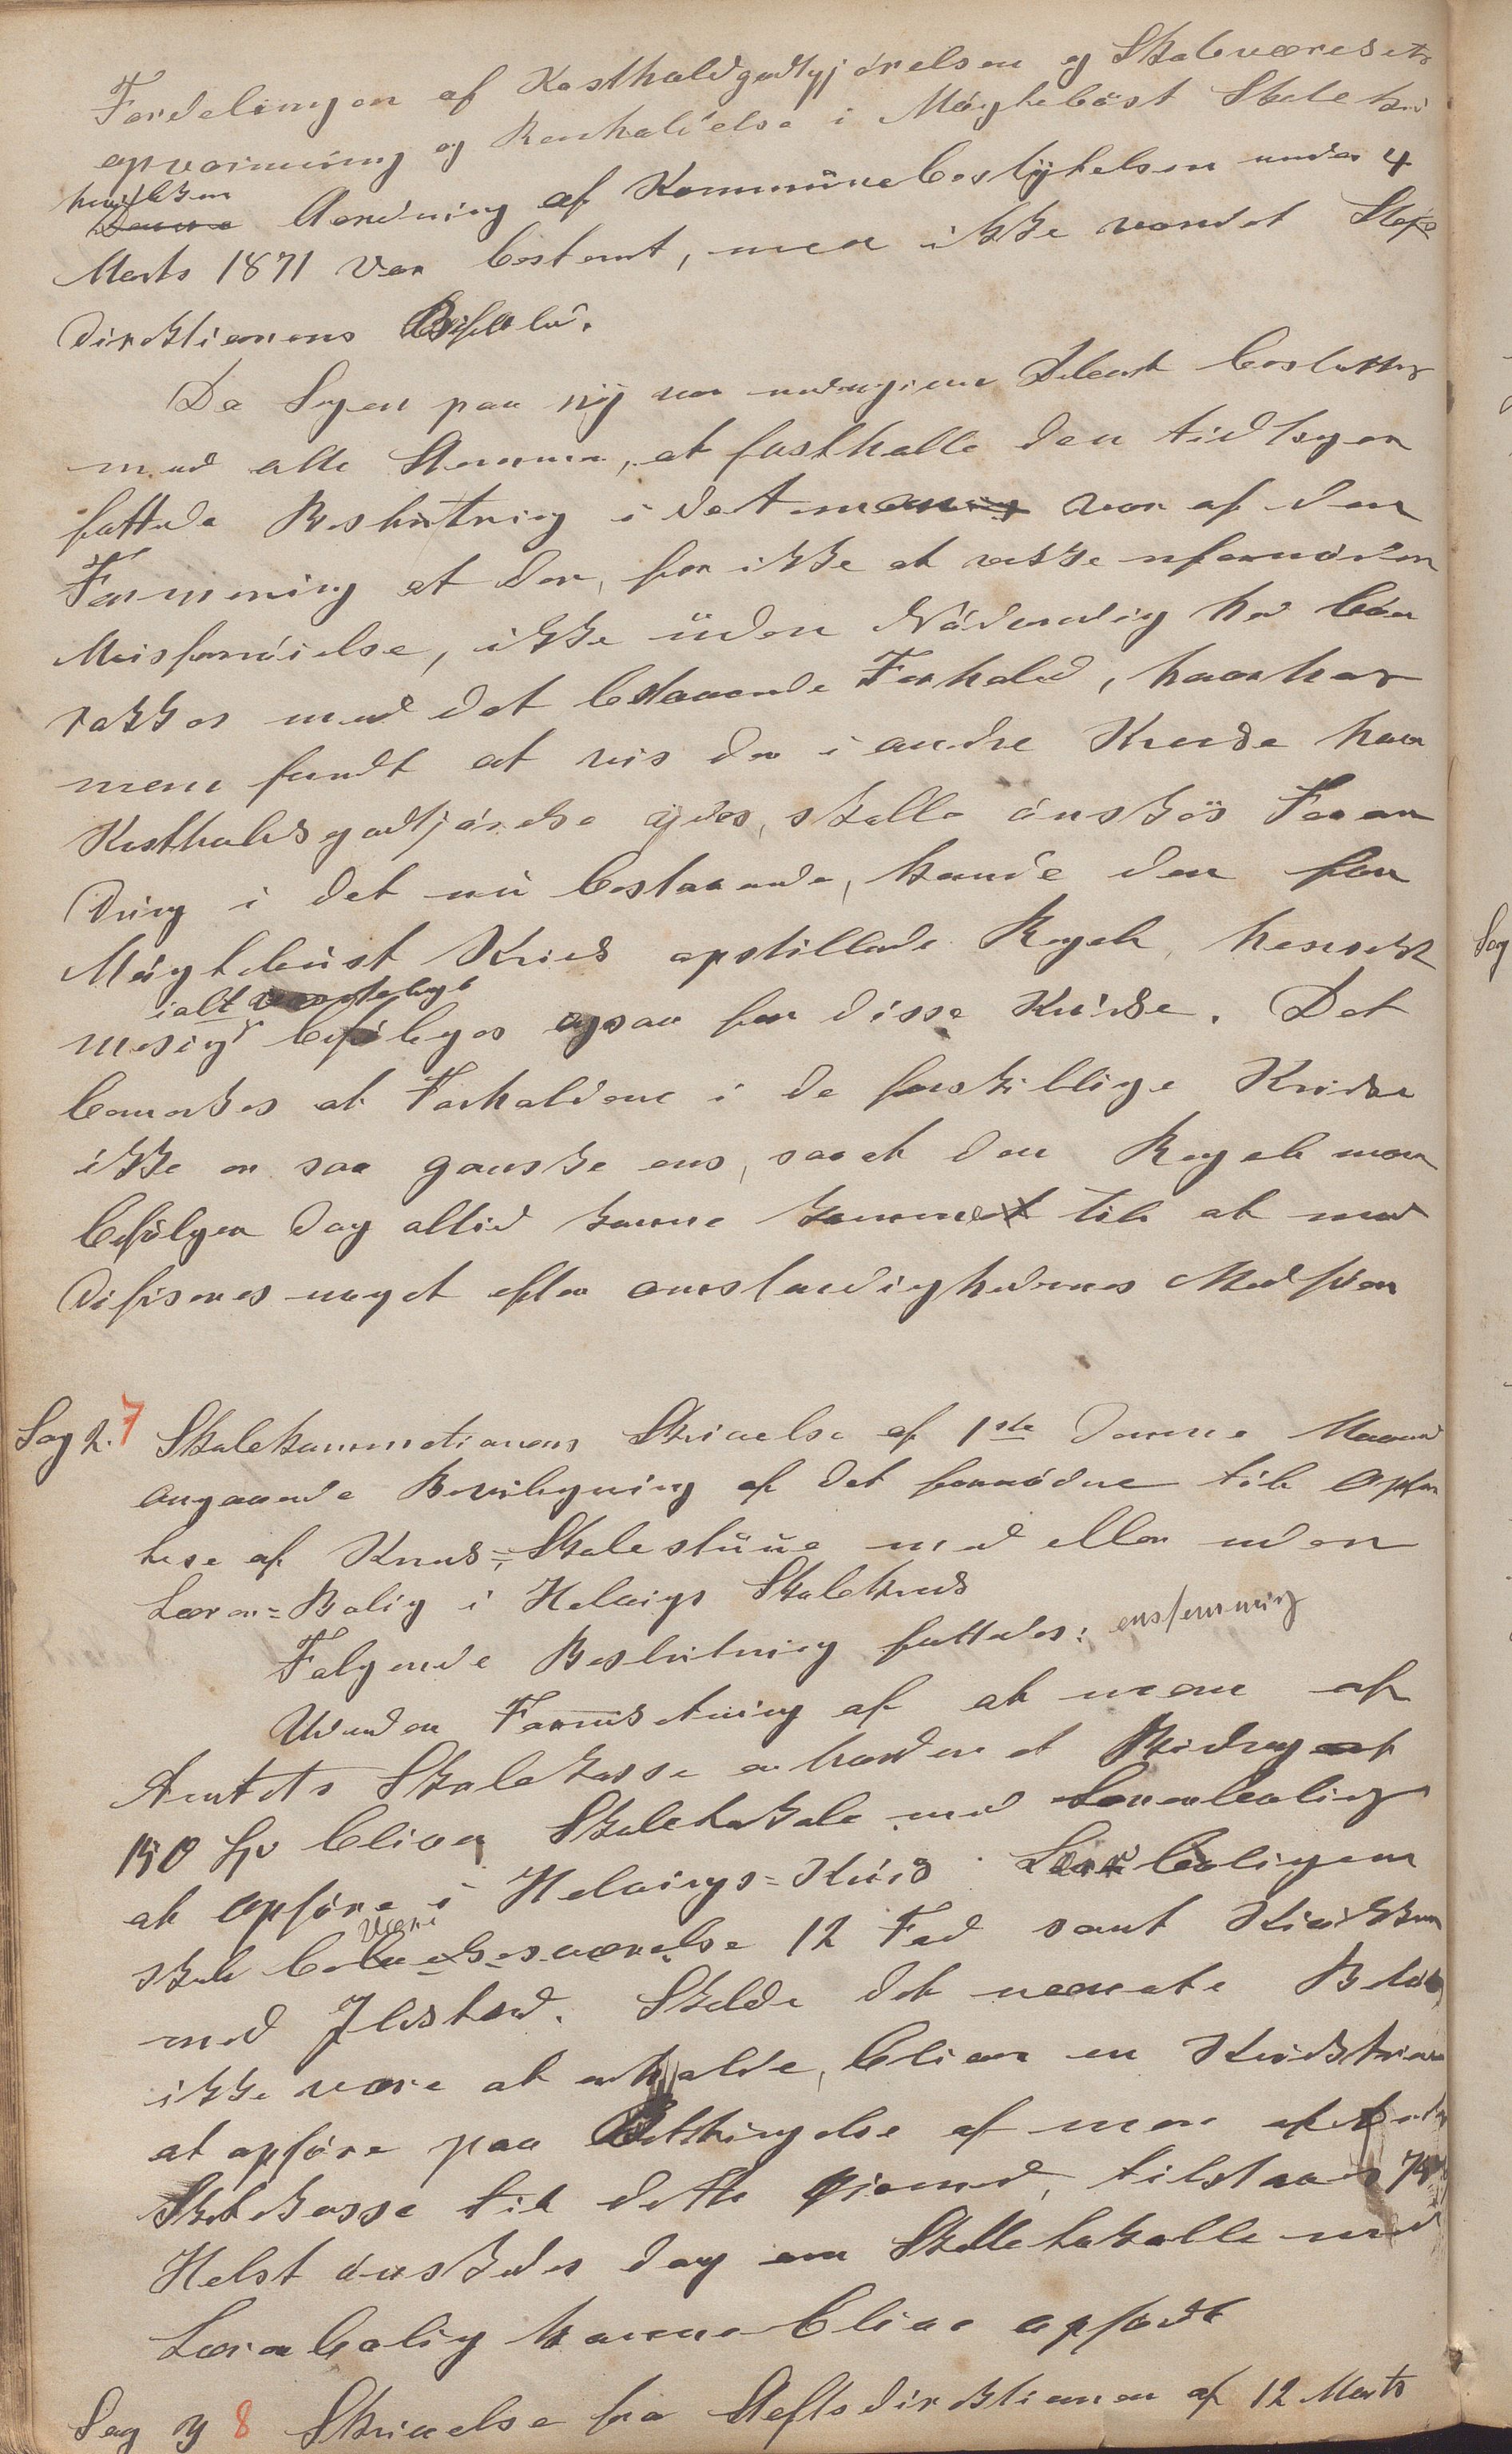 Fordelingen af Kosthaldgodtgjörelsen og Skoleværelsets
opvarmning og Renholdelse i Mögteböst Skolekreds
hvilken
Denne Anordning af Kommunebestyrelsen under 4
Marts 1871 var bestemt, men ikke vundet Stifts
direktionens Bifald.
Da Sagen paa ny var undergiven Debat besluttes
med alle Stemmer, at fastholde den tidligere
fattede Beslutning idet man var af den
Formening at der, for ikke at vække ufornöden
Misfornöielse, ikke uden Nödvendighed bör
rokkes med det bestaaende Forhold, hvorhos
man fandt at vis der i andre Kredse hvor
Kosthaldsgodtjörelse ydes, skulle önskes Foran
dring i det nu bestaaende, kunde den for
Mögtebust Kreds opstillede Regel, hensigts
ialt væsentligt
mæsigt befölges ogsaa for disse Kredse. Det
bemærkes at Forholdene i de forskillige Kredse
ikke er saa ganske ens, saa at den Regel man
befölger dog altid kunne komme til at mo
difiseres noget efter omstændighedernes Medför
Sag 2. 7 Skolekommitionens Skrivelse af 1ste denne Maaned
angaaende Bevilgning af det fornödne til Opför
telse af Kreds-Skolestuue med eller uden
Lærer-Bolig i Helvigs Skolekreds
Fölgende Beslutning fattedes: enstemmig
Under Forrudsetning af at man af
Amtets Skolekasse erholder et Bidrag af
150 Sp bliver Skolelokale med Lærerbolig
at opföre i Helvigs-Kreds. Lærerboligen
være
skal beboelsesværelse 12 Fod samt Kjökken
med Ildsted. Skulde det nævnte Belöb
ikke være at erholde, bliver en Kredsstue
at opföre paa Betingelse af man af Amtets
Skolekasse til dette Öiemed, tilstaaes 75
Helst önskedes dog om Skolelokalle med
Lærerbolig kunne blive opfört
Sag 3 8 Skrivelse fra Stiftsdirektionen af 12 Marts
Sag